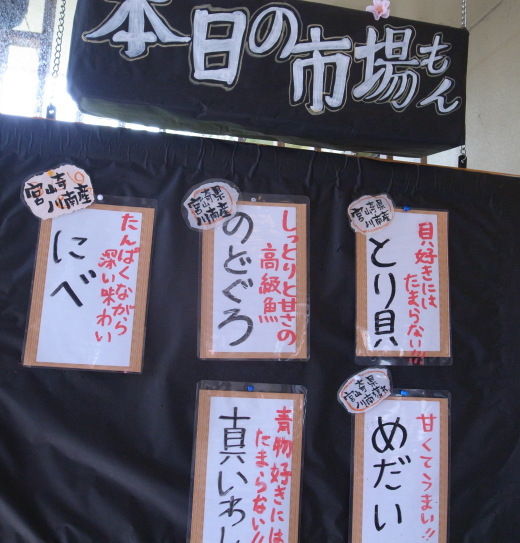 本日の市場もん
宮崎県
川南産
貝好きには
たまらない!!
とり貝
宮崎県
川南産
しっとりと甘さの
高級魚
のどぐろ
宮崎
川南産
たんぱくながら
深い味わい
にべ
宮崎県
川南産
甘くてうまい!!
めだい
青物好きには
たまらない!!
真いわし